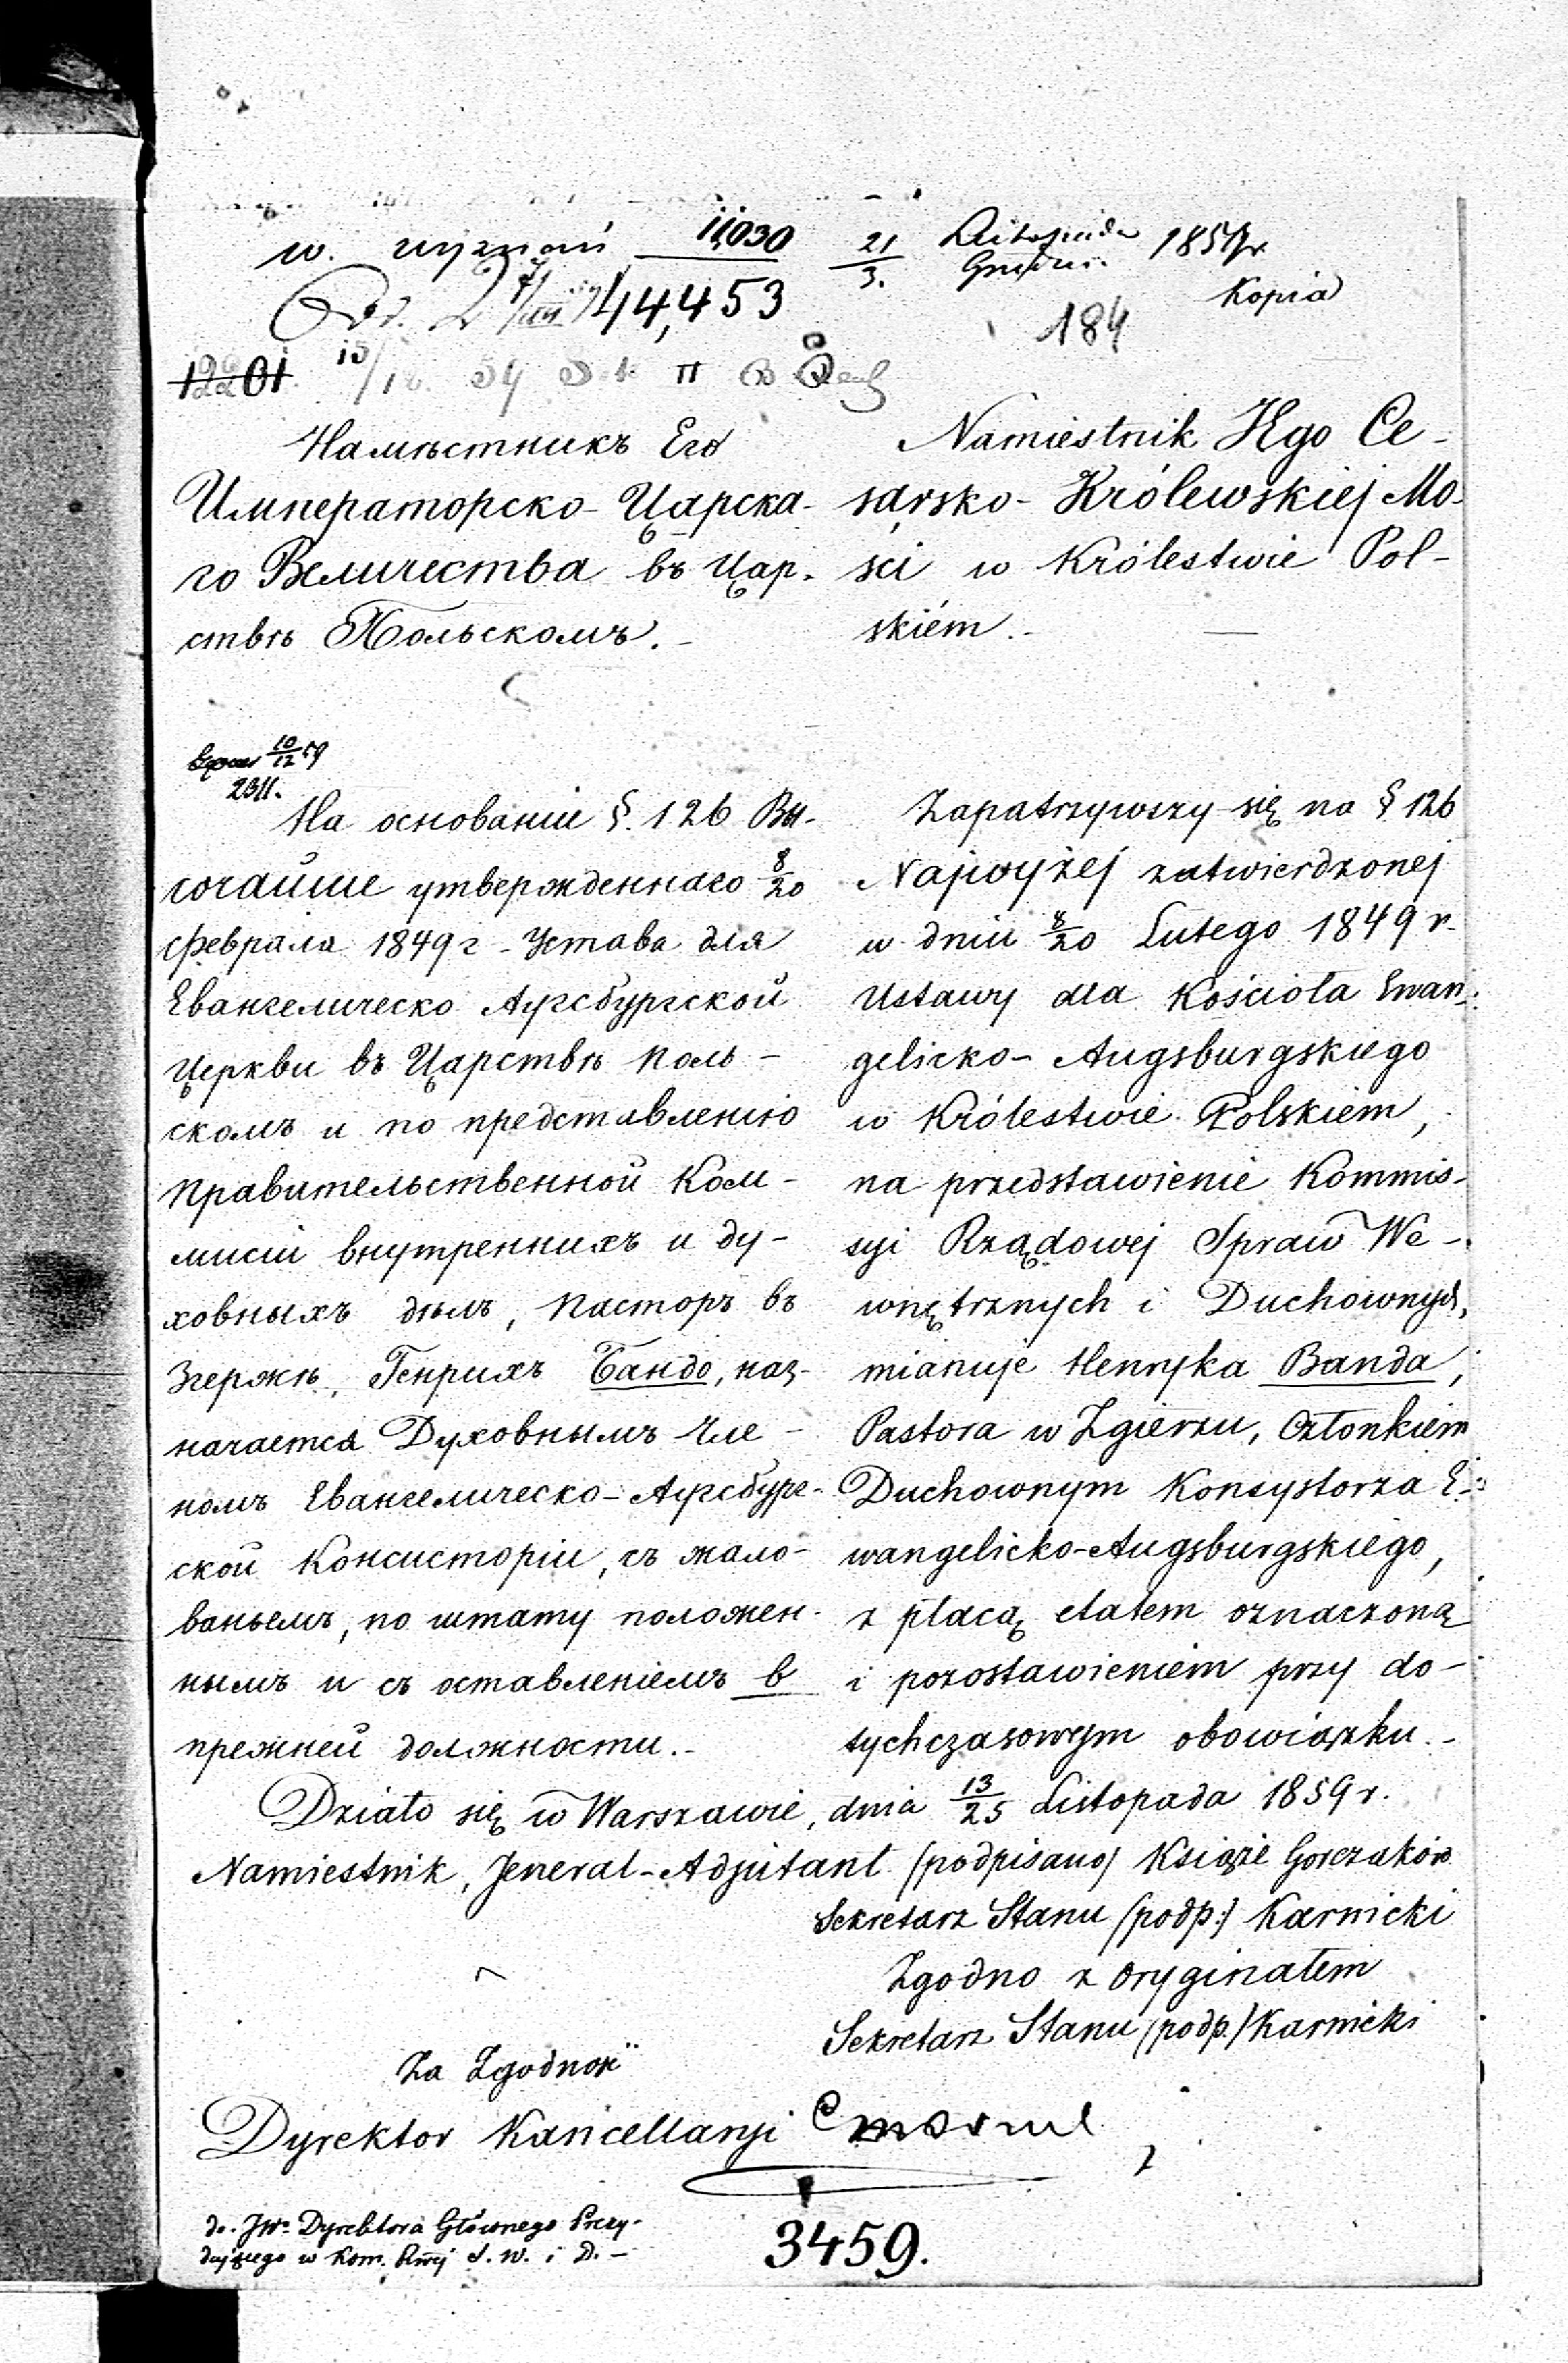 w. wyznań 11030 21/3. Listopada Grudnia 1859r
44,453 Kopia
184
Намѣстникъ Его
Императорско-Царска-
го Величества въ Цар-
ствѣ Польскомъ.-
10/12 59
2311.
На основаніи §. 126 Вы-
сочайше утвержденнаго 8/20
февраля 1849 г - Устава для
Евангелическо Аугсбургской
Церкви въ Царствѣ Поль-
скомъ и по представленію
Правительственной Ком-
мисіи внутреннихъ и ду-
ховныхъ дѣлъ, Пасторъ въ
Згержѣ, Генрихъ Бандо, наз-
начается Духовнымъ Чле-
номъ Евангелическо-Аугсбург-
ской Консисторіи, съ жало-
ваньемъ, по штату положен-
нымъ и съ оставленіемъ в
прежней должности.-
Namiestnik Jego Ce-
sarsko-Królewskiej Mo-
ści w Królestwie Pol-
skiém.-
Zapatrzywszy się na § 126
Najwyżej zatwierdzonej
w dniu 8/20 Lutego 1849 r.
Ustawy dla Kościoła Ewan-
gelicko-Augsburgskiego
w Królestwie Polskiem,
na przedstawienie Kommis-
syi Rządowej Spraw We-
wnętrznych i Duchownych,
mianuje Henryka Banda,
Pastora w Zgierzu, Członkiem
Duchownym Konsystorza E-
wangelicko-Augsburgskiego,
z płacą etatem oznaczoną
i pozostawieniem przy do-
tychczasowym obowiązku.-
Działo się w Warszawie, dnia 13/25 Listopada 1859 r.
Namiestnik, Jenerał-Adjutant (podpisano) Książe Gorczaków
Sekretarz Stanu (podp:) Karnicki
Zgodno z Oryginałem
Sekretarz Stanu (podp.) Karnicki
Za Zgodność
Dyrektor Kancellaryi
do JW. Dyrektora Głównego Prezy-
dującego w Kom. Rząj S. W. i D.-
3459.